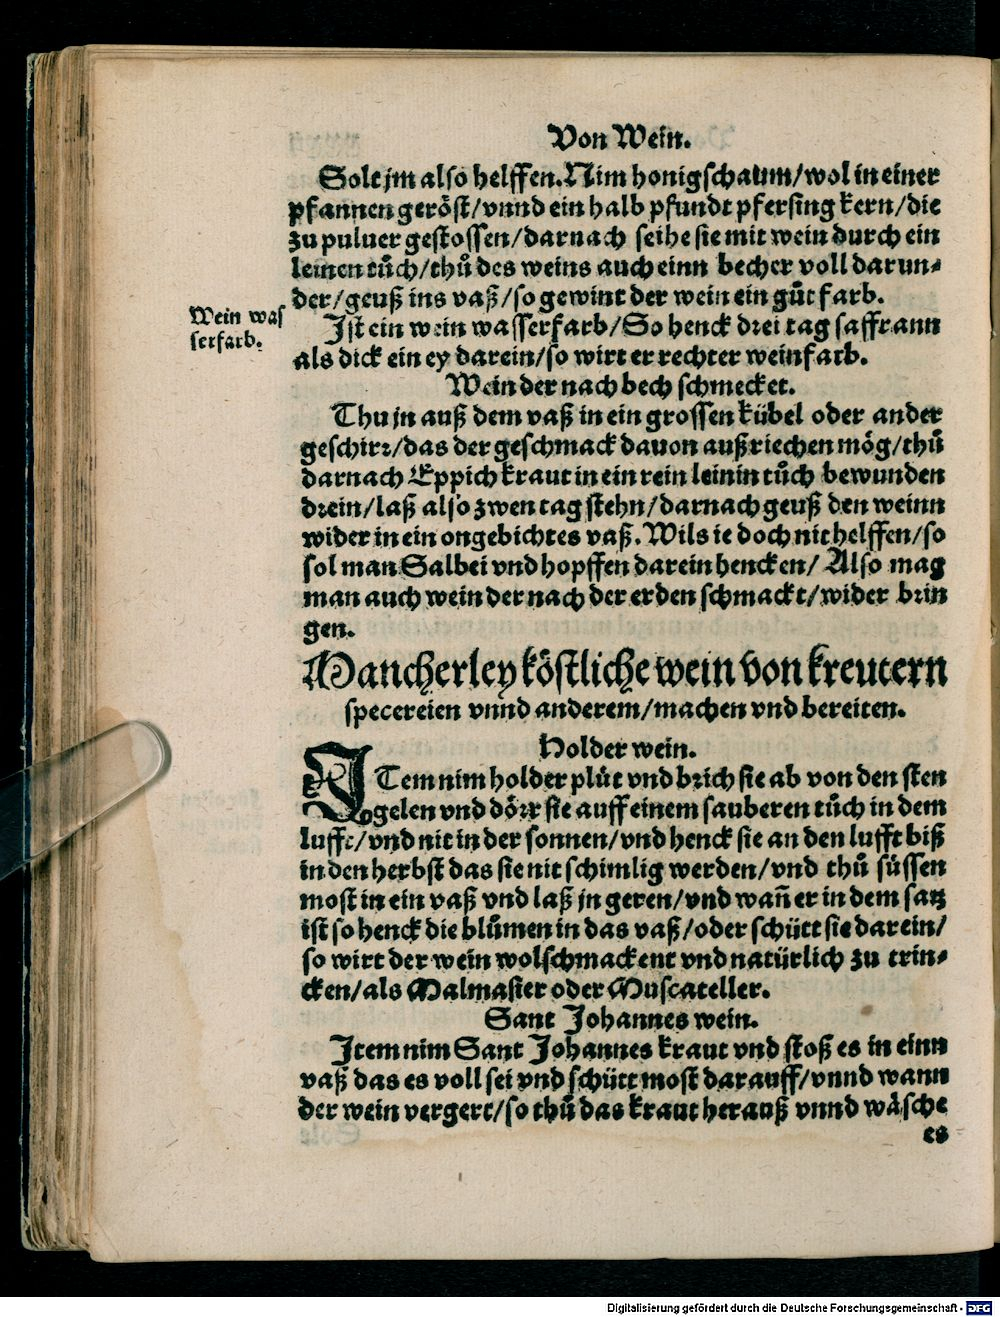 Von Wein.
Solt jm also helffen. Nim honigschaum/wol in einer
pfannen geröst/vnnd ein halb pfundt pfersing kern/die
zu puluer gestossen/darnach seihe sie mit wein durch ein
leinen tůch/thů des weins auch einn becher voll darun-
der/geuß ins vaß/so gewint der wein ein gůt farb.
Wein was
serfarb.
Jst ein wein wasserfarb/So henck drei tag saffrann
als dick ein ey darein/so wirt er rechter weinfarb.
Wein der nach bech schmecket.
Thu jn auß dem vaß in ein grossen kübel oder ander
geschirr/das der geschmack dauon außriechen mög/thů
darnach Eppich kraut in ein rein leinin tůch bewunden
drein/laß also zwen tag stehn/darnach geuß den weinn
wider in ein ongebichtes vaß. Wils ie doch nit helffen/so
sol man Salbei vnd hopffen darein hencken/ Also mag
man auch wein der nach der erden schmackt/wider brin
gen.
Mancherley köstliche wein von kreutern
specereien vnnd anderem/machen vnd bereiten.
Holder wein.
JTem nim holder plůt vnd brich sie ab von den sten
gelen vnd dörr sie auff einem sauberen tůch in dem
lufft/vnd nit in der sonnen/vnd henck sie an den lufft biß
in den herbst das sie nit schimlig werden/vnd thů süssen
most in ein vaß vnd laß jn geren/vnd wañ er in dem satz
ist so henck die blůmen in das vaß/oder schütt sie darein/
so wirt der wein wolschmackent vnd natürlich zu trin-
cken/als Malmasier oder Muscateller.
Sant Johannes wein.
Jtem nim Sant Johannes kraut vnd stoß es in einn
vaß das es voll sei vnd schütt most darauff/vnnd wann
der wein vergert/so thů das kraut herauß vnnd wäsche
es
Digitalisierung gefördert durch die Deutsche Forschungsgemeinschaft - DFG